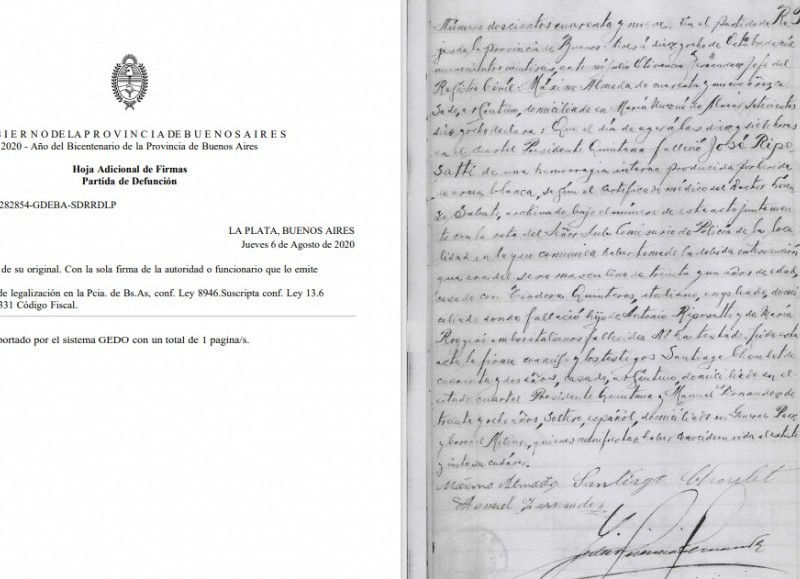 BIERNO DE LA PROVINCIA DE BUENOS AIRES
2020 - Año del Bicentenario de la Provincia de Buenos Aires
Hoja Adicional de Firmas
Partida de Defunción
282854-GDEBA-SDRRDLP
LA PLATA, BUENOS AIRES
Jueves 6 de Agosto de 2020
de su original. Con la sola firma de la autoridad o funcionario que lo emite
de legalización en la Pcia. de Bs.As, conf. Ley 8946.Suscripta conf. Ley 13.6
331 Código Fiscal.
portado por el sistema GEDO con un total de 1 pagina/s.
Número doscientos cuarenta y nueve. En el partido de Ro
jas de la provincia de Buenos Aires a diez y ocho de Octubre de mil
novecientos ante mi Julio Fernandez, Jefe del
Registro Civil: Máximo Almada de cuarenta y nueve años, ca
sado, argentino, domiciliado en Maria de Alvear setecientos
diez y ocho declara: Que el día de ayer á las diez y siete horas
en el Cuartel Presidente Quintana falleció José Ripo
satti de una hemorragia interna producida por herida
de arma blanca, según el certificado médico del Doctor
Sabati, archivado bajo el número de esta acta juntamen
te con la nota del Señor Sub Comisario de Policía de la loca
lidad en la que comunica haber tomado la debida intervencion
que era del sexo masculino de treinta y un años de edad,
casado con Teodora Quinteros, italiano, empleado, domi
ciliado donde falleció hijo de Antonio Riposatti y de María
Roggeri ambos italianos fallecidos No ha testado. Leída esta
acta la firma conmigo y los testigos Santiago de
cuarenta y dos años, casado, argentino, domiciliado en el
citado cuartel Presidente Quintana y Manuel Fernandez de
treinta y ocho años, soltero, español, domiciliado en General Paz
y Coronel Molina, quienes manifiestan haber conocido en vida al extinto
y visto su cadáver.
Máximo Almada Santiago
Manuel Fernandez